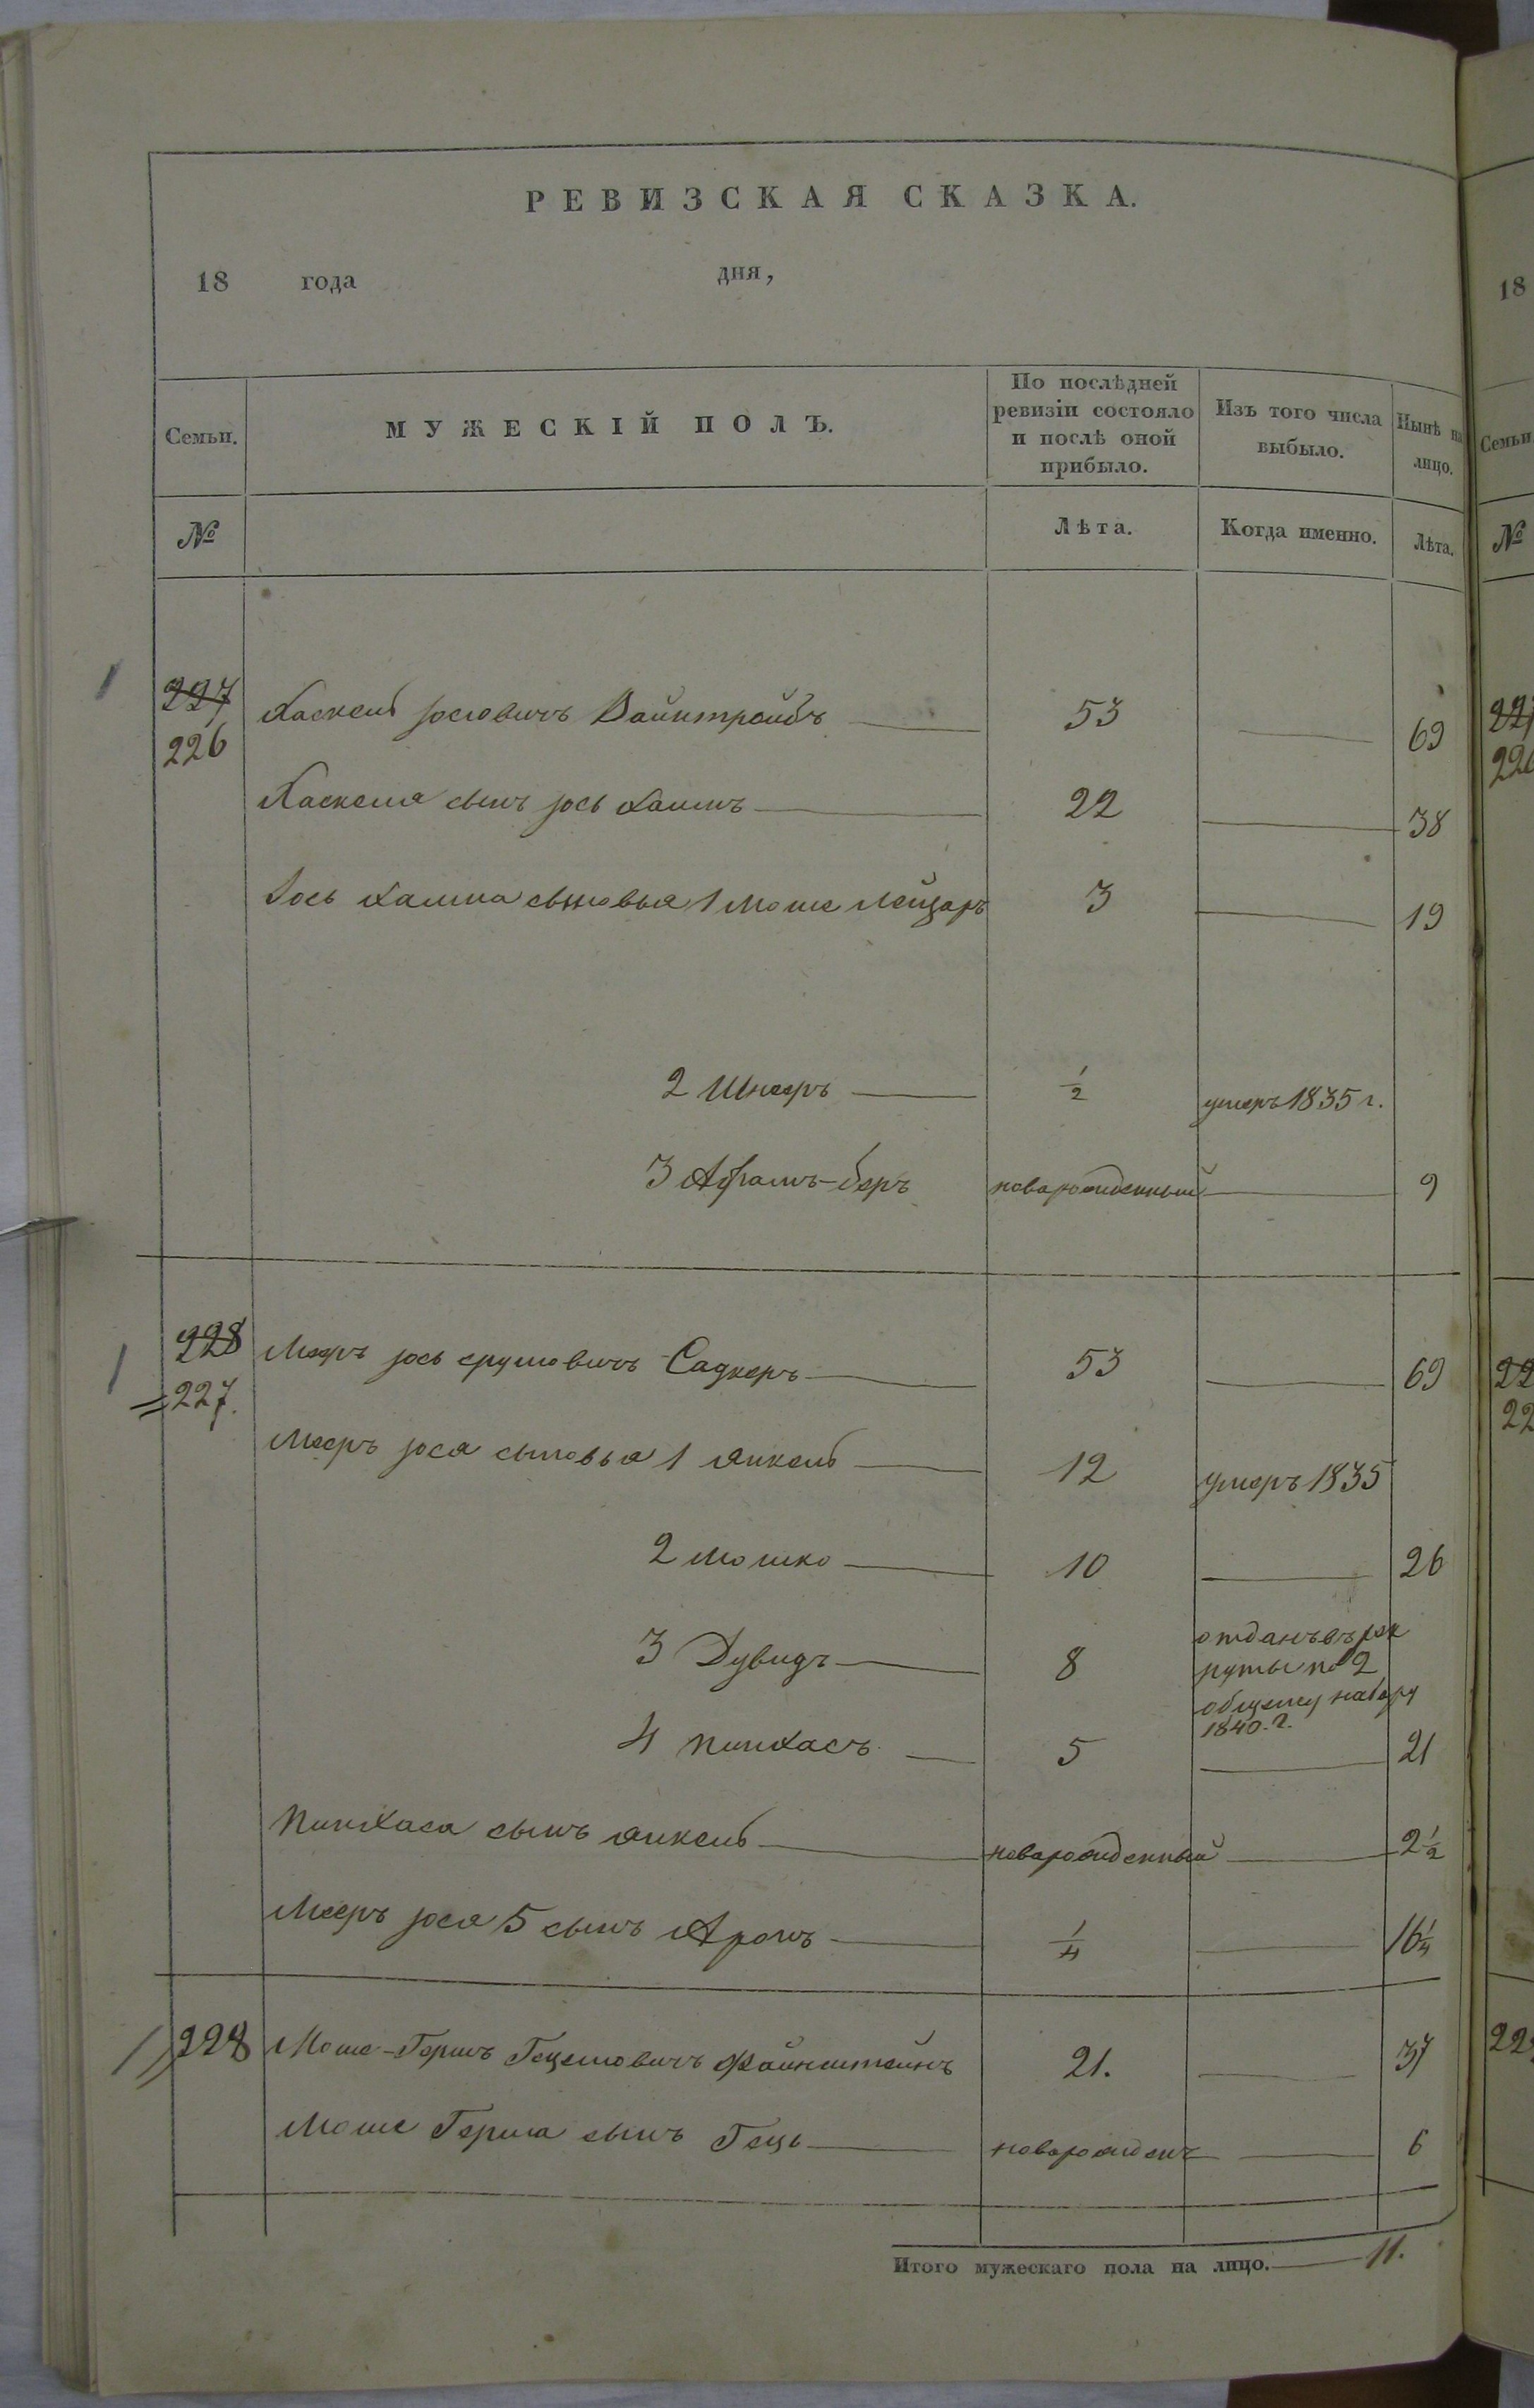 РЕВИЗСКАЯ СКАЗКА.
18 года дня,
Семьи. МУЖЕСКІЙ ПОЛЪ. По послѣдней ревизіи состояло и послѣ оной прибыло. Изъ того числа выбыло. Нынѣ на лицо.
№ Лѣта. Когда именно. Лѣта.
227 Хаскель Іосіовичъ Вайнтройбъ 53 69
226
Хаскеля сынъ Іось Хаимъ 22 38
Іось Хаима сыновья 1 Моше Лейзаръ 3 19
2 Шнееръ 1/2 умеръ 1835 г.
3 Абрамъ-беръ новарожденный 9
228 Мееръ Іось Сруліовичъ Садкеръ 53 69
227.
Мееръ Іося сыновья 1 Янкель 12 умеръ 1835
2 Мошко 10 26
3 Дувидъ 8 отданъ въ рек
руты по 2
общему набору
1840. г.
4 Пинхасъ 5 21
Пинхаса сынъ Янкель новарожденный 2 1/2
Мееръ Іося 5 сынъ Аронъ 1/4 16 1/4
228 Моше-Гершъ Гецеліовичъ Файнштейнъ 21. 37
Моше Герша сынъ Гець новарожденъ 6
Итого мужескаго пола на лицо. 11.
18
Семьи
№